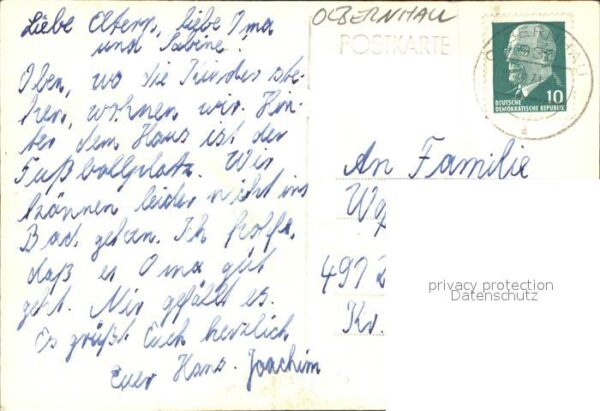 Liebe Eltern, liebe Oma
und Sabine!
Oben, wo die Kinder ste-
hen, wohnen wir. Hin-
ter dem Haus ist der
Fußballplatz. Wir
können leider nicht ins
Bad gehen. Ich hoffe,
daß es Oma gut
geht. Mir gefällt es.
Es grüßt Euch herzlich
Euer Hans-Joachim
OLBERNHAU
POSTKARTE
10
DEUTSCHE
DEMOKRATISCHE REPUBLIK
An Familie
497 2
Kr.
privacy protection
Datenschutz